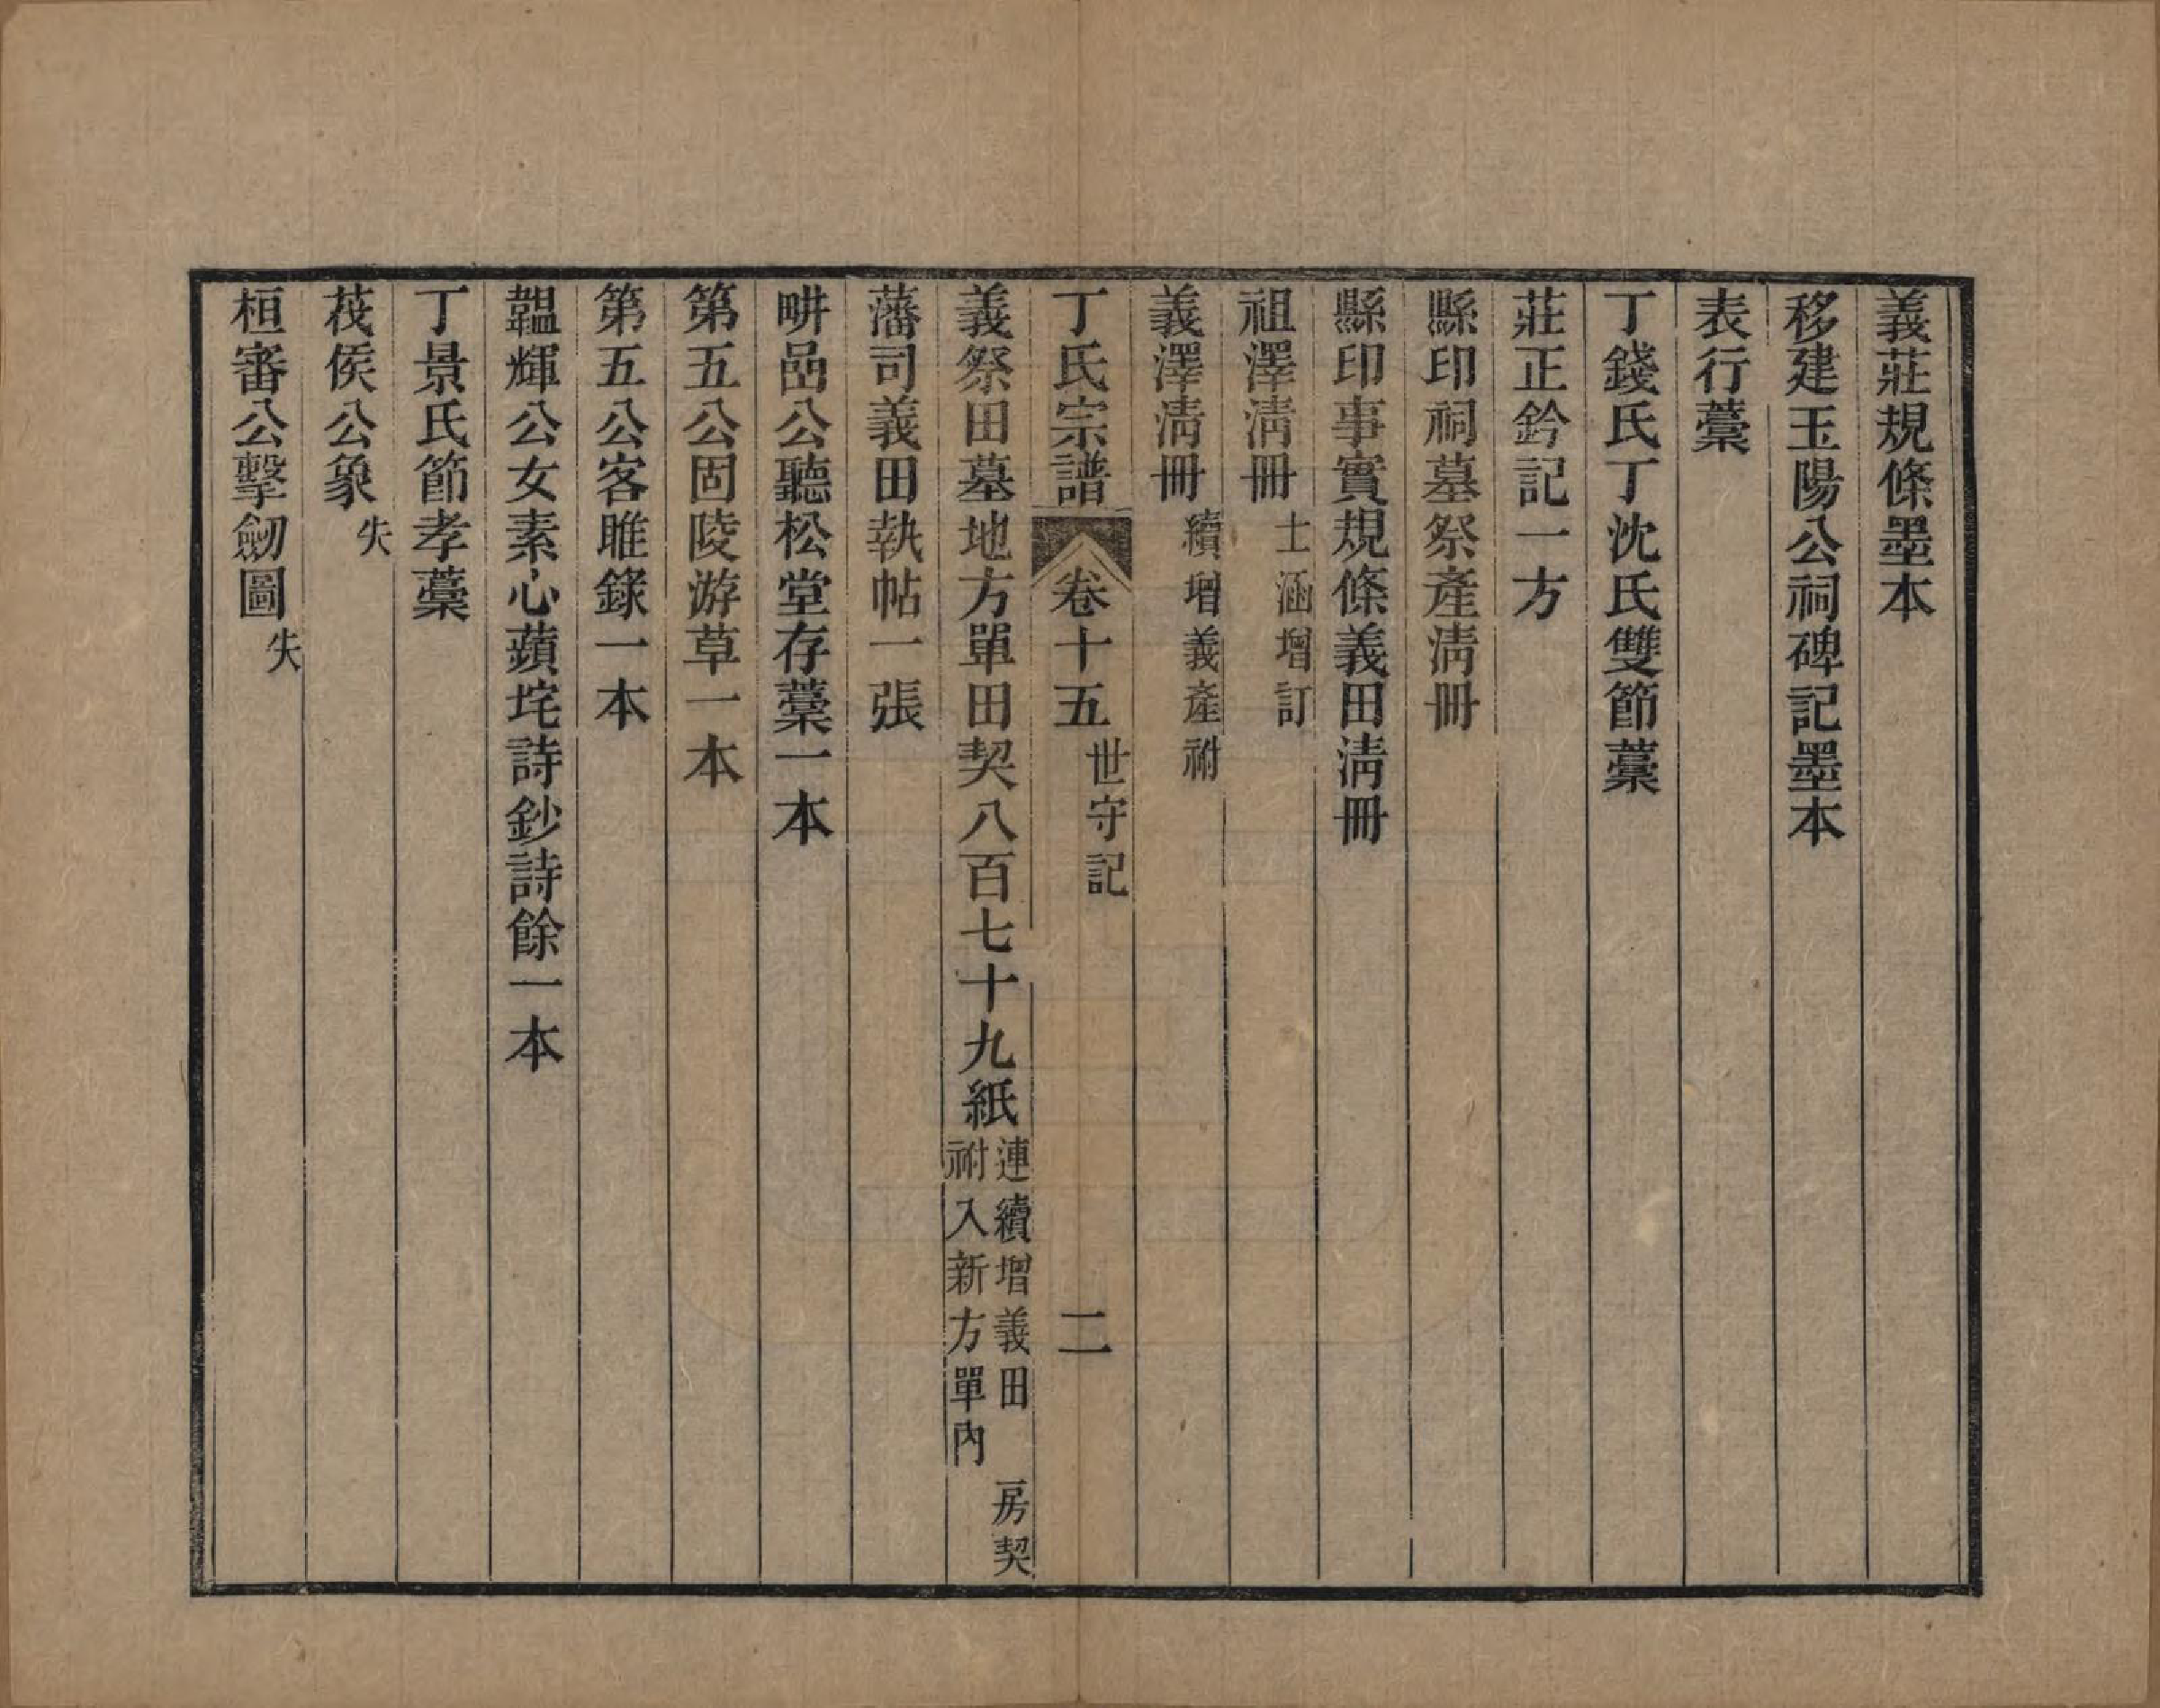 義莊規條墨本
移建玉陽公祠碑記墨本
表行藁
丁錢氏丁沈氏雙節藁
莊正鈐記一方
縣印祠墓祭產淸冊
縣印事實規條義田淸冊
祖澤淸冊士涵增訂
義澤淸冊續增義產祔
丁氏宗譜 卷十五世守記 二
義祭田墓地方單田契八百七十九紙連續增義田 房契
祔入新方單內
藩司義田執帖一張
畊嵒公聽松堂存藁一本
第五公固陵游草一本
第五公客睢錄一本
韞輝公女素心蘋垞詩鈔詩餘一本
丁景氏節孝藁
茷侯公象失
桓審公擊劒圖失